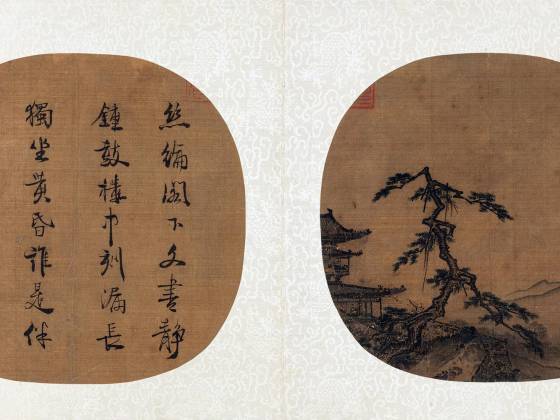 絲綸閣下文書靜
鍾鼓樓中刻漏長
獨坐黃昏誰是伴